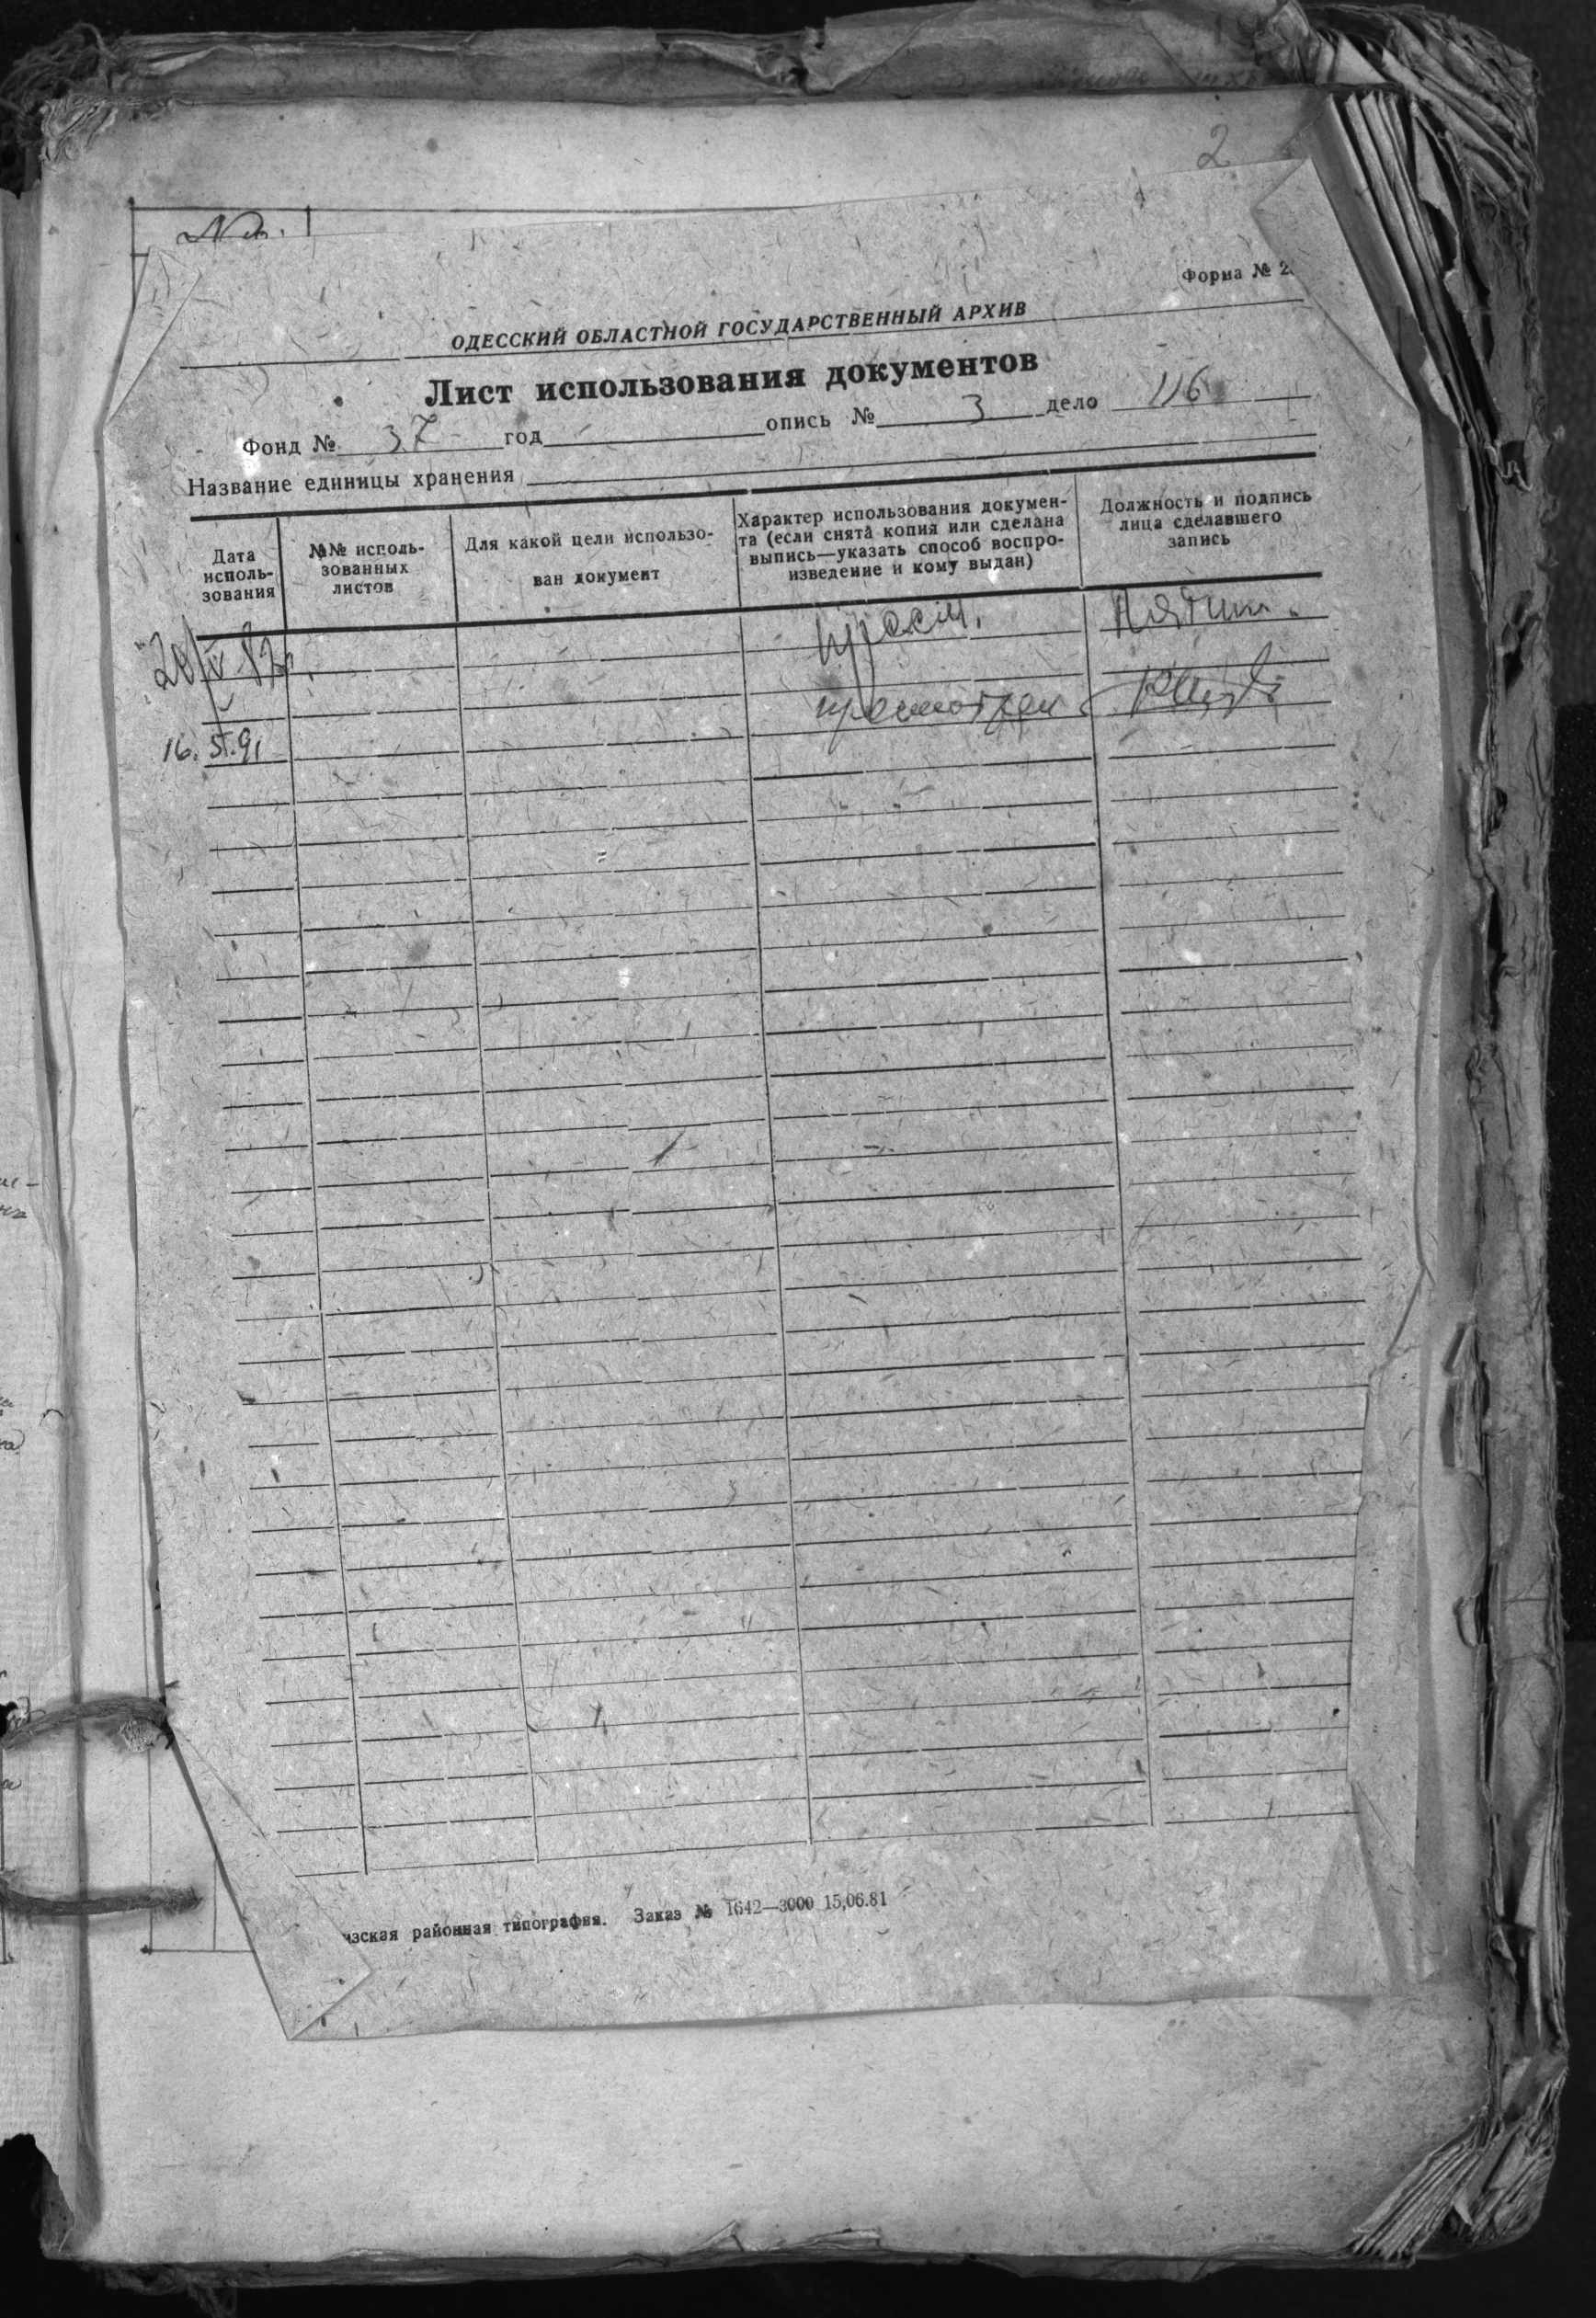 2
Форма № 2.
ОДЕССКИЙ ОБЛАСТНОЙ ГОСУДАРСТВЕННЫЙ АРХИВ
Лист использования документов
Фонд № 37 год опись № 3 дело 116
Название единицы хранения
Дата исполь-зования
№№ исполь-зованных листов
Для какой цели использо-ван документ
Характер использования докумен-та (если снята копия или сделана выпись—указать способ воспро-изведение и кому выдан)
Должность и подпись лица сделавшего запись
просм.
просмотрен
16. 91
районная типография. Заказ № 1642—3000 15,06.81